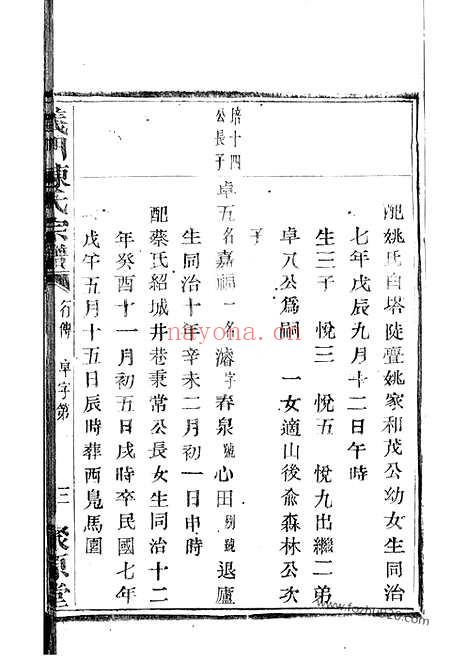 配姚氏白塔陡亹姚家和茂公幼女生同治
七年戊辰九月十二日午時
生三子 悅三 悅五 悅九出繼二弟
卓八公為嗣 一女適山後俞森林公次
子
培十四
公長子
卓五名嘉福一名濬字春泉號心田別號退廬
生同治十年辛未二月初一日申時
配蔡氏紹城井巷秉常公長女生同治十二
年癸酉十一月初五日戌時卒民國七年
戊午五月十五日辰時葬西鳧馬園
義門陳氏宗譜
行傳 卓字第
三
聚原堂
nayona.cn
www.fozhu920.com